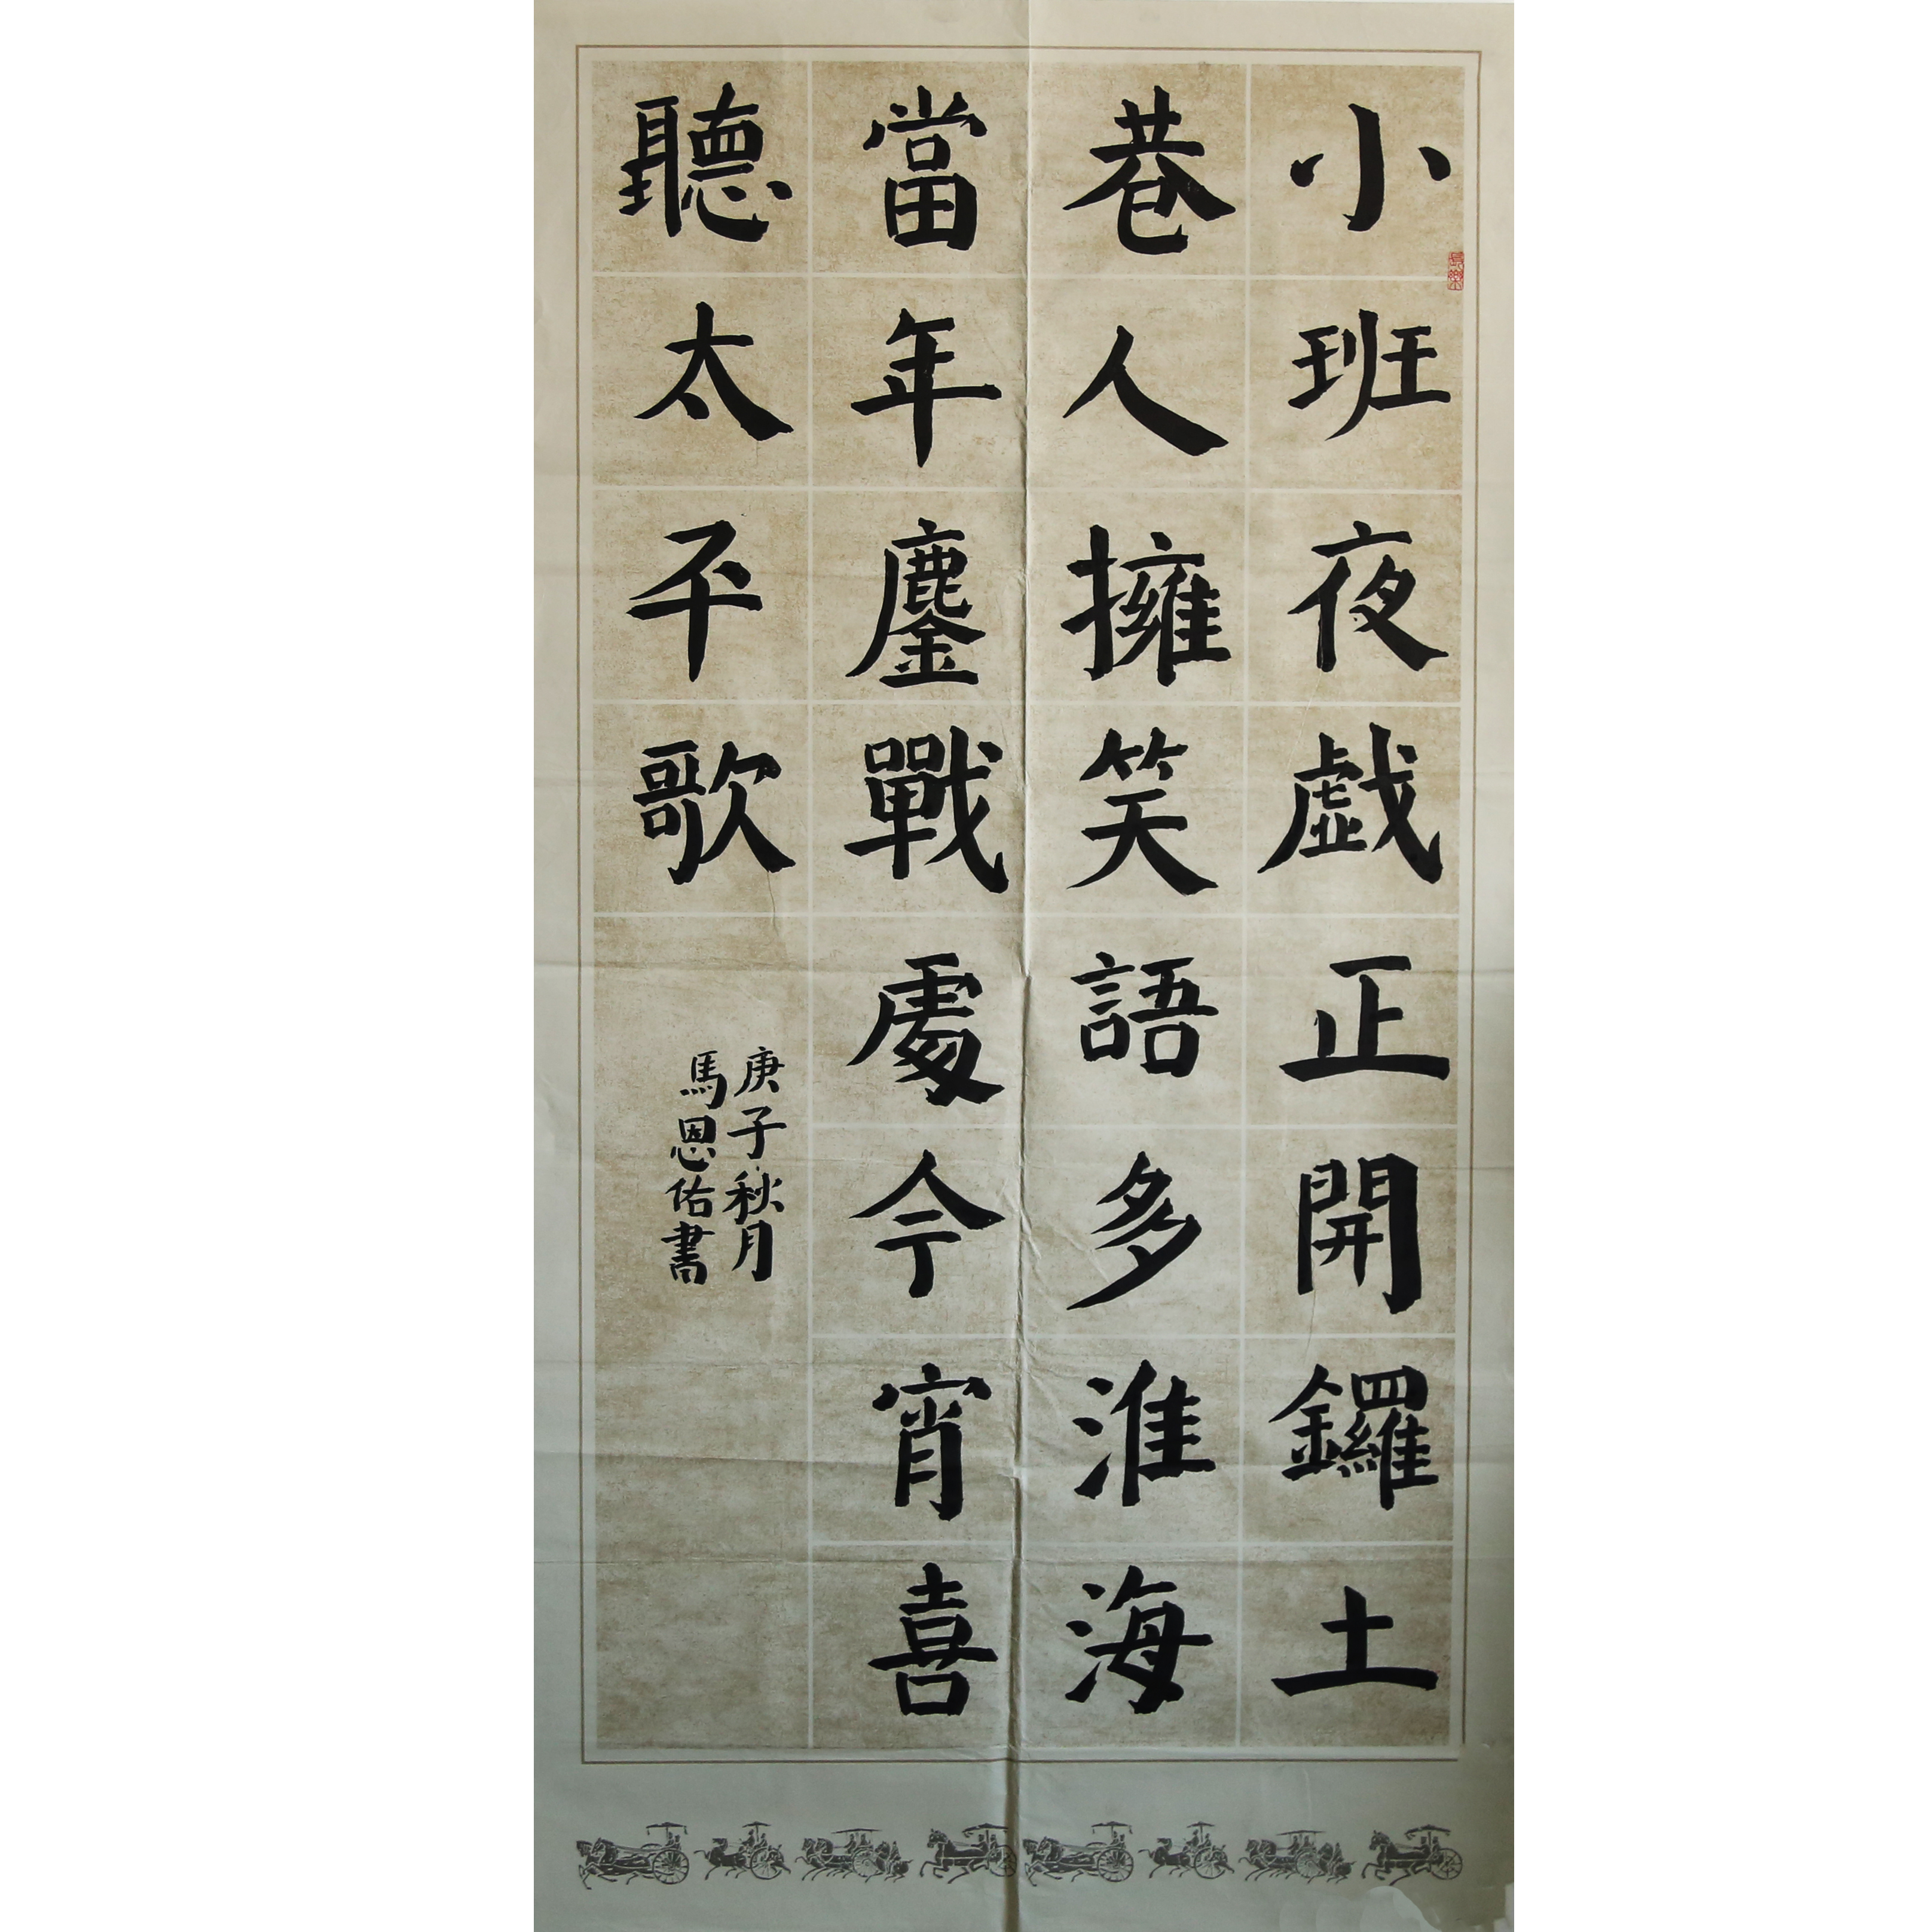 小班夜戲正開鑼土
巷人擁笑語多淮海
當年鏖戰處今宵喜
聽太平歌
庚子秋月
馬恩佑書